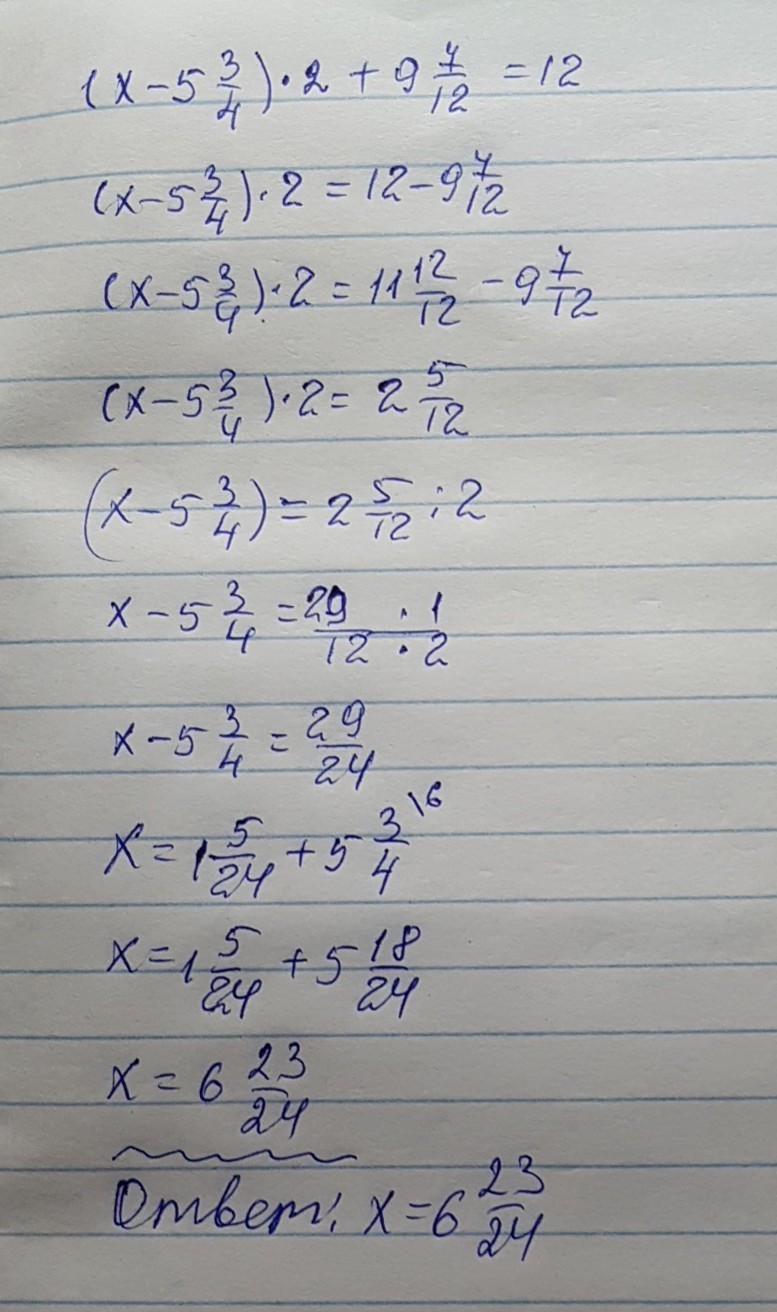 (x-5 3/4)·2 + 9 7/12 = 12
(x-5 3/4)·2 = 12-9 7/12
(x-5 3/4)·2 = 11 12/12 - 9 7/12
(x-5 3/4)·2 = 2 5/12
(x-5 3/4) = 2 5/12 : 2
x-5 3/4 = 29 · 1/12 · 2
x-5 3/4 = 29/24
x = 1 5/24 + 5 3/4 \6
x = 1 5/24 + 5 18/24
x = 6 23/24
Ответ: x = 6 23/24